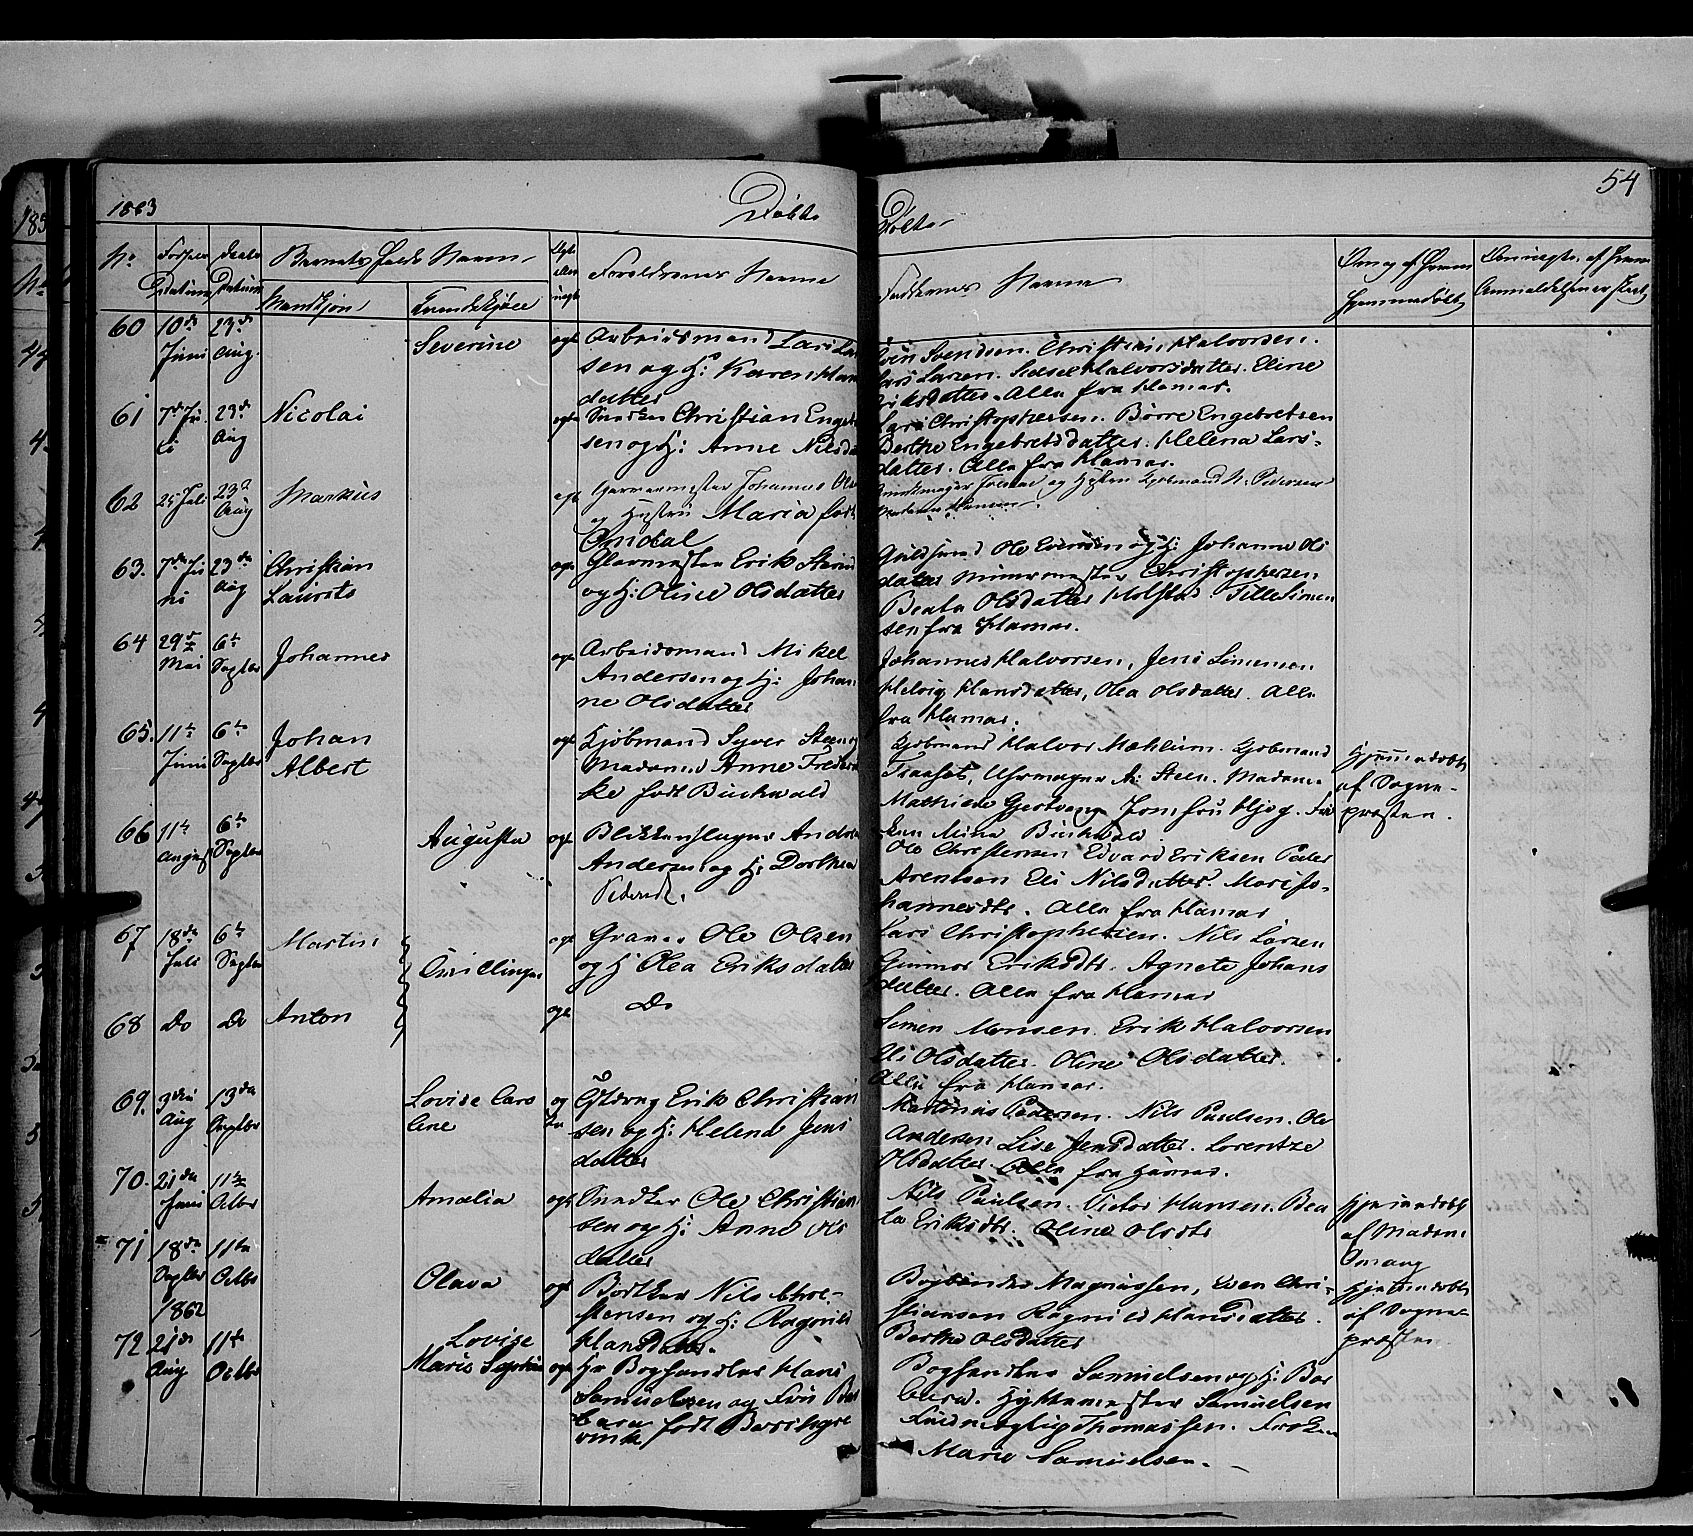 1863
Döbte
Döbte
54
No
Fødsels Datum
Daabs Datum
Barnets fulde Navn
Mandkjøn
Qvindekjøn
Forældrenes Navne
Faddernes Navne
60 10de Juni 23de Aug. Severine ægte Arbeidsmand Lars Lar
sen og H: Karen Han
datter
Sven Svendsen. Christian Halvorsen.
Lars Larsen. Sidsel Halvorsdatter. Eline
Eriksdatter. Alle fra Hamar.
61 7de Juli 23de Aug Nicolai ægte Christian Enge
sen og H: Anne Nilsda
Lars Christophersen. Börre Engebretsen
Berthe Engebretsdatter. Helena Lars-
datter. Alle fra Hamar.
62 25 Juli 23de Aug Markus ægte Garvermester Johannes Ols
og Hustru Maria født
Omdal
og Hustru Kjøbmand N. Pedersen
Madame Hansen.
63. 7de Juni 23de Aug Christian Laurits ægte Glarmester Erik
og H: Oline Olsdatter
Guldsmed Ole Evensen og H: Johanne Ols
datter Murermester Christophersen
Beate Olsdatter Holstad. Tille Simen
sen fra Hamar.
64 29de Mai 6te Septbr Johannes ægte Arbeidsmand Mikel
Andersen og H: Johan
ne Olsdatter
Johannes Halvorsen, Jens Simensen
Helvig Hansdatter, Olea Olsdatter. Alle
fra Hamar.
65. 11te Juni 6te Septbr Johan Albert ægte Kjøbmand Syver Steen og
Madame Anne Frederi
ke født Buchwald
Kjøbmand Halvor Mæhlum. Kjøbmand
Traaset, Uhrmager A. Steen. Madame
Mathilde Gjestvang Jomfru Hjog. Frø
ken Mina Buchwald.
Hjemmedøbt
af Sogne-
præsten.
66 11te August 6te Septbr Augusta ægte Blikkenslager Andreas
Andersen og H: Dorthea
Pedersd.
Ole Christensen Edvard Eriksen Peder
Arentsen Eli Nilsdatter. Mari Jo-
hannesdtr. Alle fra Hamar
67 18de Juli 6te Septbr Martin Tvillinger ægte Graver Ole Olsen
og H Olea Eriksdatter
Lars Christophersen. Nils Larsen
Gunnor Eriksdtr. Agnete Johans
datter. Alle fra Hamar
68 Do Do Anton ægte Do
Simen Monsen. Erik Halvorsen
Eli Olsdatter. Oline Olsdatter.
Alle fra Hamar.
69. 3die Aug 13de Septbr Lovise Caro
line ægte Erik Christian
sen og H: Helena Jens
datter
Martinus Pedersen. Nils Paulsen. Ole
Andersen Lise Jensdatter. Lorentze
Olsdatter. Alle fra Hamar.
70. 21de Juni 11te Octbr Amalia ægte Snedker Ole Christian
sen og H: Anne Ols
datter
Nils Paulsen. Peter Hansen. Bea
te Eriksdtr. Oline Olsdtr
Hjemmedøbt
af Madam
Omang
71 18de Septbr 1862 11te Octbr Olava ægte Bødker Nils Chri-
stensen og H: Ragnild
Hansdatter.
Bogbinder Magnussen, Even Chri-
stiansen Ragnild Hansdatter.
Berthe Olsdatter
Hjemmedøbt
af Sogne-
præsten
72 21de Aug 11te Octbr Lovise
Marie ægte Hr Boghandler Hans
Samuelsen og Fru Bar
bara født
Boghandler Samuelsen og H: Bar
bara. Hyttemester Samuelsen
Thomassen. Frøken
Marie Samuelsen.